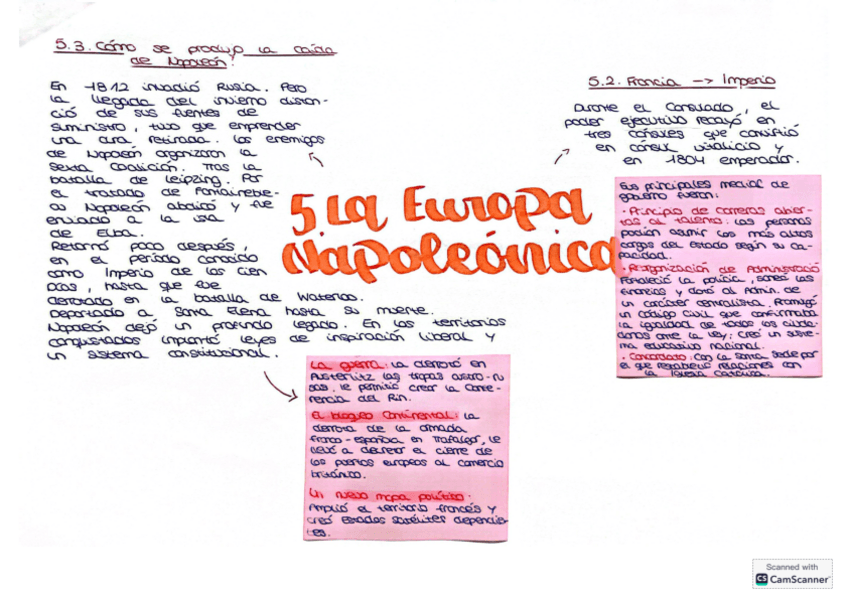 5.3. Cómo se produjo la caída
de Napoleón?
En 1812 invadió Rusia. Pero
la llegada del invierno distan-
ció de sus fuentes de
suministro, tuvo que emprender
una dura retirada. Los enemigos
de Napoleón organizaron la
Sexta Coalición. Tras la
batalla de Leipzing. Por
el tratado de
Napoleón abdicó y fue
enviado a la isla
de Elba.
Retornó poco después,
en el período conocido
como Imperio de los cien
Días, hasta que fue
derrotado en la batalla de
Deportado a Santa Elena hasta su muerte.
Napoleón dejó un profundo legado. En los territorios
conquistados implantó leyes de inspiración liberal y
un sistema constitucional.
5. La Europa
Napoleónica
5.2. Francia -> Imperio
Durante el Consulado, el
poder ejecutivo recayó en
tres cónsules que convirtió
en cónsul vitalicio y
en 1804 emperador.
Sus principales de
gobierno fueron:
· Principio de carreras abier-
tas al talento: Las personas
podían asumir los más altos
cargos del Estado según su ca-
pacidad.
· Reorganización de Administració
Fortaleció la policía, saneó las
finanzas y dotó al Admin. de
un carácter centralista. Promulgó
un código civil que confirmaba
la igualdad de todos los ciuda-
danos ante la ley; creó un siste-
ma educativo nacional.
· Concordato: Con la Santa Sede por
el que restableció relaciones con
la Iglesia Católica.
La guerra: La derrotó en
Austerlitz las tropas austro-ru-
sas. Le permitió crear la Confe-
rencia del Rin.
El bloqueo continental: La
derrota de la armada
franco-española en Trafalgar, le
llevó a decretar el cierre de
los puertos europeos al comercio
británico.
Un nuevo mapa político.
Amplió el territorio francés y
creó Estados satélites dependien-
tes.
Scanned with
CS CamScanner